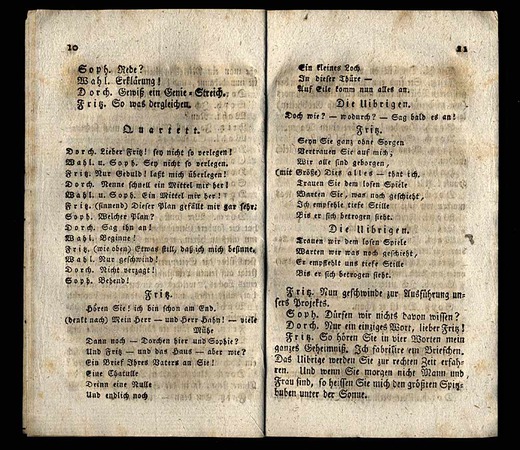 10
Soph. Rede?
Wahl. Erklärung!
Dorch. Gewiß ein Genie-Streich.
Fritz. So was dergleichen.
Quartett.
Dorch. Lieber Fritz! sey nicht so verlegen!
Wahl. u. Soph. Sey nicht so verlegen.
Fritz. Nur Geduld! laßt mich überlegen!
Dorch. Nenne schnell ein Mittel mir her!
Wahl. u. Soph. Ein Mittel mir her!
Fritz. (sinnend) Dieser Plan gefällt mir gar sehr.
Soph. Welcher Plan?
Dorch. Sag ihn an!
Wahl. Beginne!
Fritz. (wie oben) Etwas still, daß ich mich besinne.
Wahl. Nur geschwind!
Dorch. Nicht verzagt!
Soph. Behend!
Fritz.
Hören Sie! ich bin schon am End.
(denkt nach) Mein Herr — und Herr Hahn! — viele
Mühe
Dann noch — Dorchen hier und Sophie?
Und Fritz — und das Haus — aber wie?
Ein Brief Ihres Vaters an Sie!
Eine Chatulle
Drinn eine Nulle
Und endlich noch
11
Ein kleines Loch
In dieser Thüre —
Auf Eile komm nun alles an.
Die Uibrigen.
Doch wie? — wodurch? — Sag bald es an!
Fritz.
Seyn Sie ganz ohne Sorgen
Vertrauen Sie auf mich,
Wir alle sind geborgen,
(mit Größe) Dies alles — that ich,
Trauen Sie dem losen Spiele
Warten Sie, was noch geschieht,
Ich empfehle tiefe Stille
Bis er sich betrogen sieht.
Die Uibrigen.
Trauen wir dem losen Spiele
Warten wir was noch geschieht,
Er empfehlt uns tiefe Stille
Bis er sich betrogen sieht.
Fritz. Nun geschwinde zur Ausführung un-
sers Projekts.
Soph. Dürfen wir nichts davon wissen?
Dorch. Nur ein einziges Wort, lieber Fritz!
Fritz. So hören Sie in vier Worten mein
ganzes Geheimniß. Ich fabrizire ein Briefchen.
Das Uibrige werden Sie zur rechten Zeit erfah-
ren. Und wenn Sie morgen nicht Mann und
Frau sind, so heissen Sie mich den größten Spitz-
buben unter der Sonne.